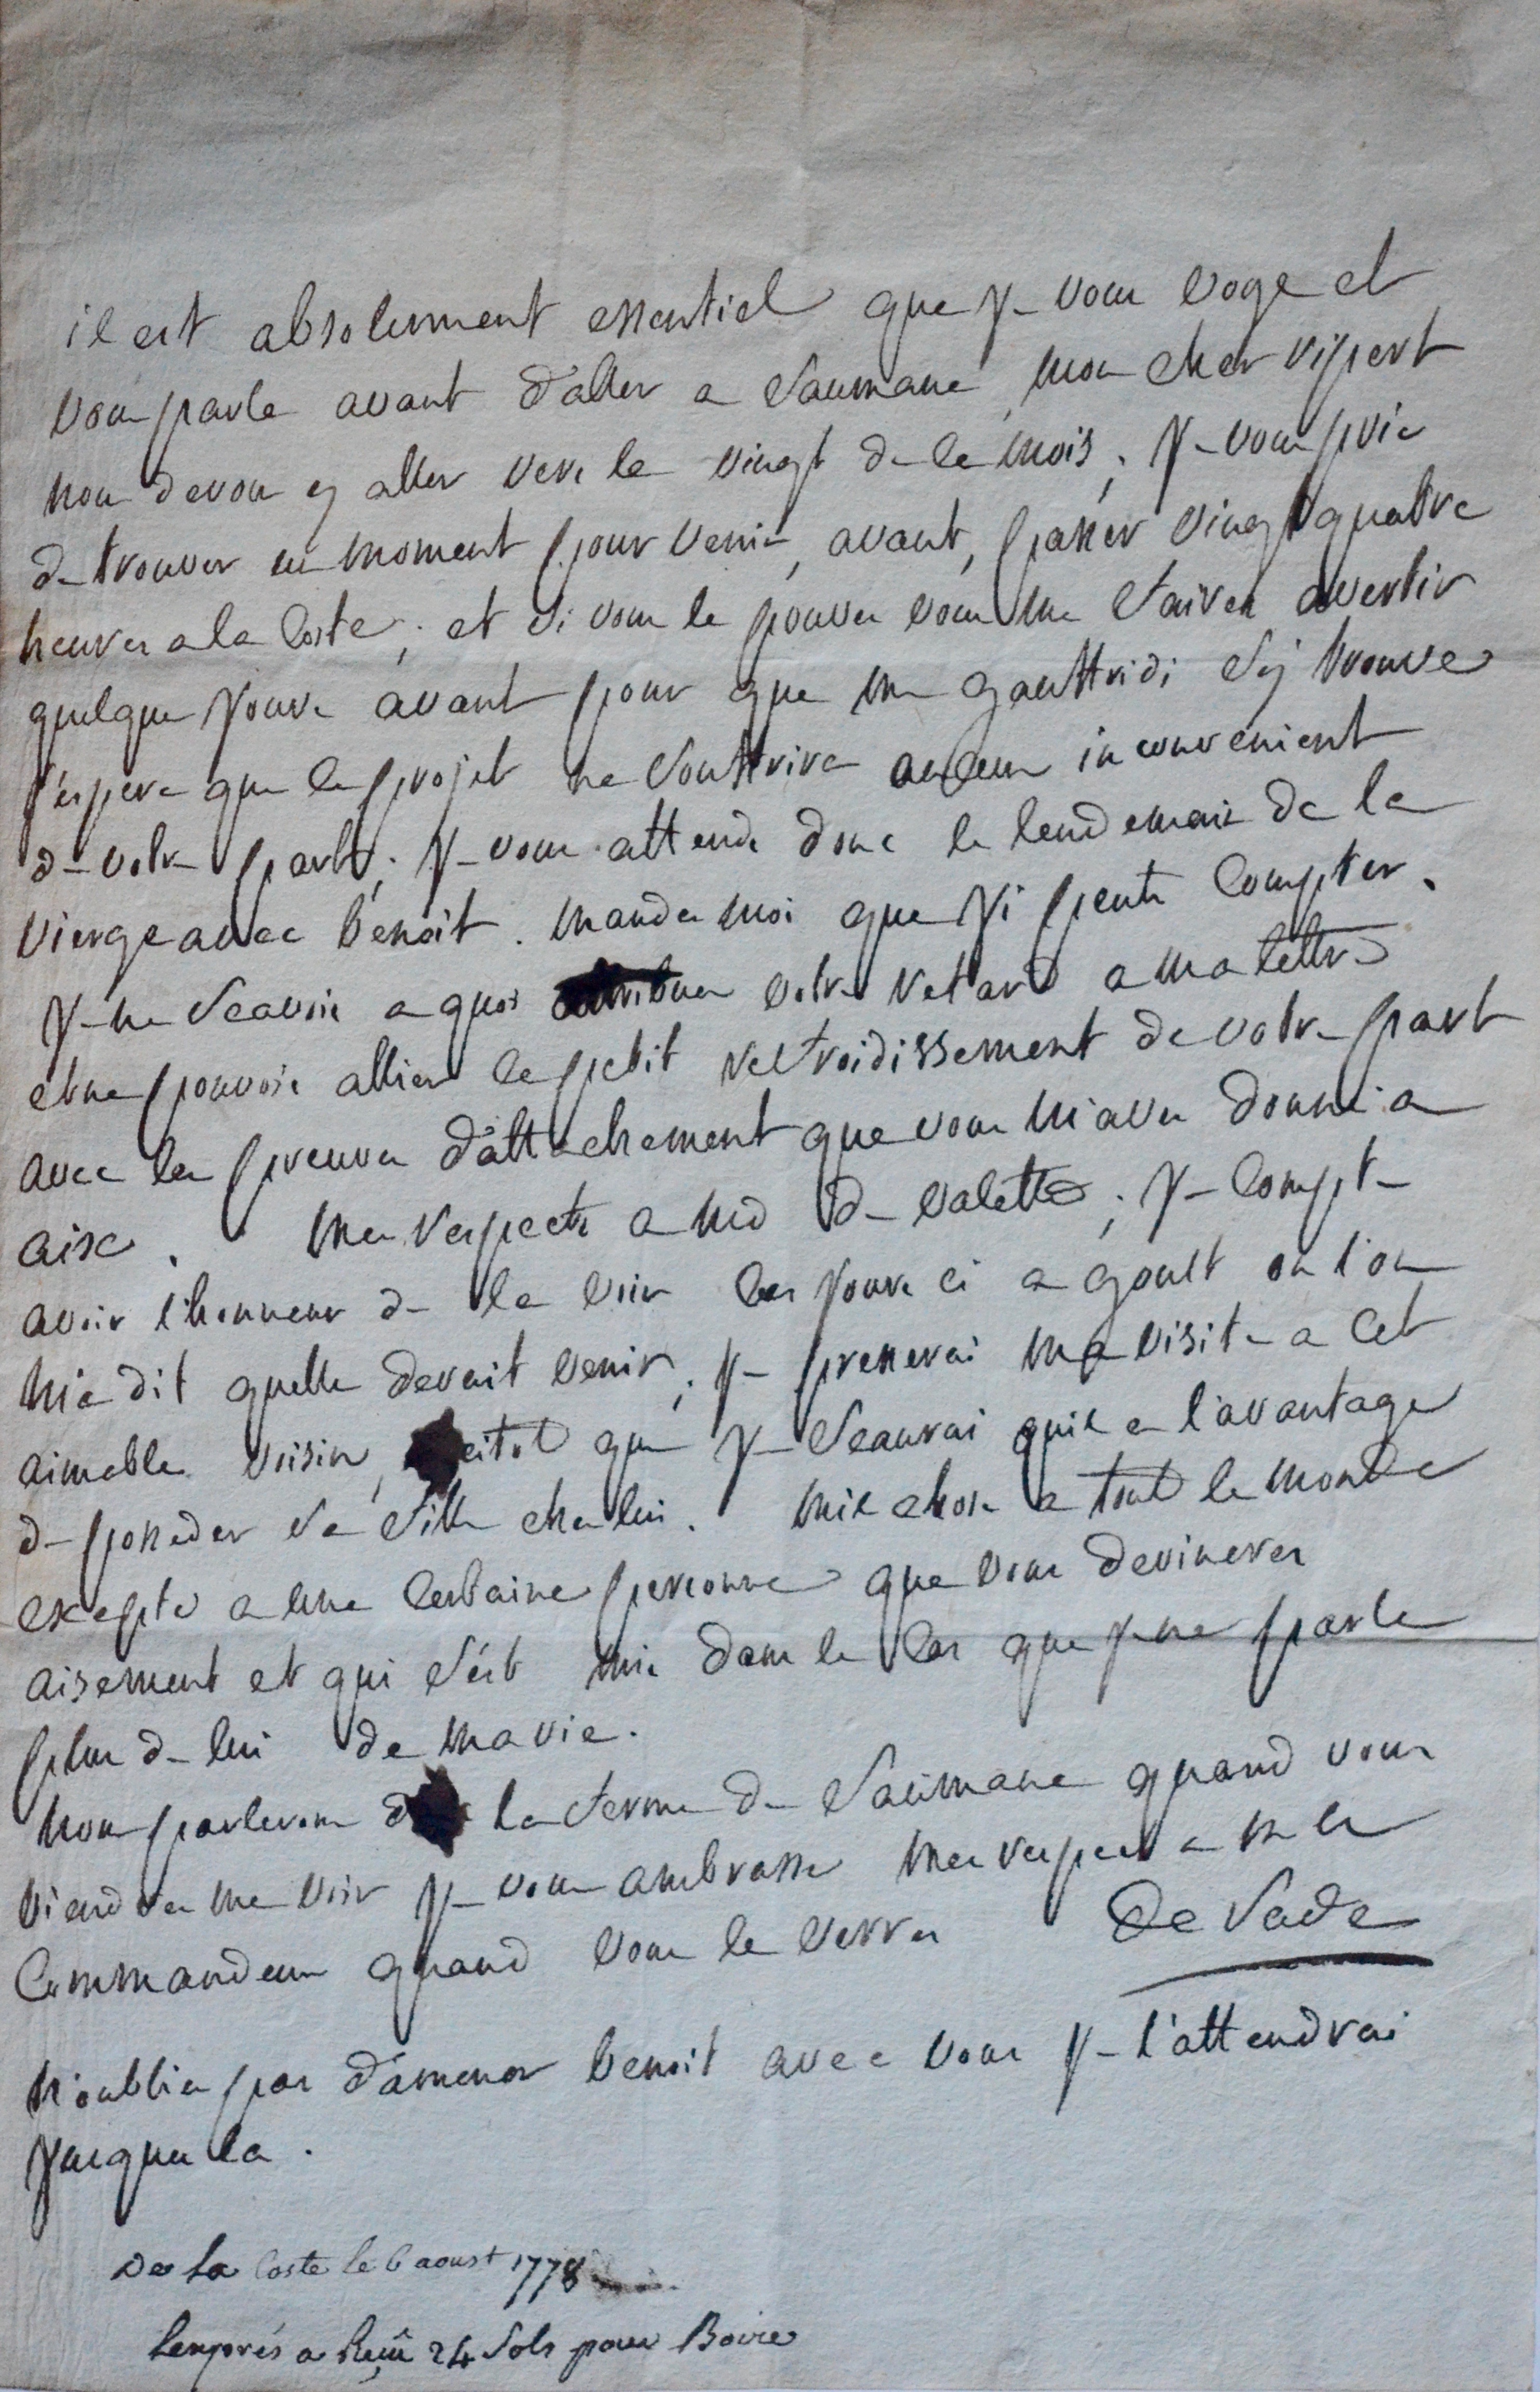 il est absolument essentiel que je vous voye et
vous parle avant d'aller a Saumane, mon cher ripert
nous devons y aller vers le vingt de le mois; je vous prie
de trouver un moment pour venir, avant, passer vingt quatre
heures a la Coste; et si vous le pouvez vous me fairez avertir
quelques jours avant pour que mr gauffridi s'y trouve
j'espere que le projet ne souffrira aucun inconvenient
de votre part; je vous attends donc le lendemain de la
vierge avec benoit. mandez moi que j'i peux compter.
je ne scavois a quoi attribuer votre retard a ma lettre
et ne pouvois allier le petit refroidissement de votre part
avec les preuves d'attachement que vous m'avez donné a
aix. mes respects a md de valette; je compte
avoir l'honneur de la voir ces jours ci a goult ou l'on
m'a dit quelle devait venir, je presserai ma visite a cet
aimable voisin, sitot que je scaurai quil a l'avantage
de posseder sa fille chez lui. mil choses a tout le monde
excepté a une certaine personne que vous devinerez
aisement et qui s'est mis dans le cas que je ne parle
plus de lui de ma vie.
nous parlerons de la ferme de Saumane quand vous
viendrez me voir je vous ambrasse mes respects a mr le
Commandeur quand vous le verrez De Sade
n'oubliez pas d'amener benoit avec vous je l'attendrai
jusques la.
De la Coste le 6 aoust 1778
a Reçû 24 Sols pour Boire